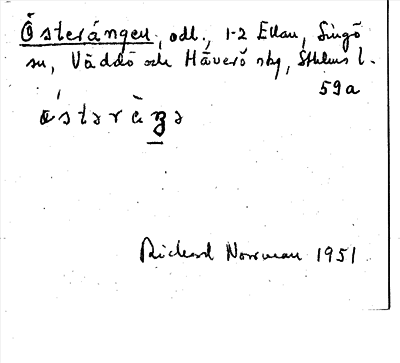 Österängen, odl., 1-2 Ellan, Singö
sn, Väddö och Häverö skg, Sthlms l.
59a
Rickard Norrman 1951